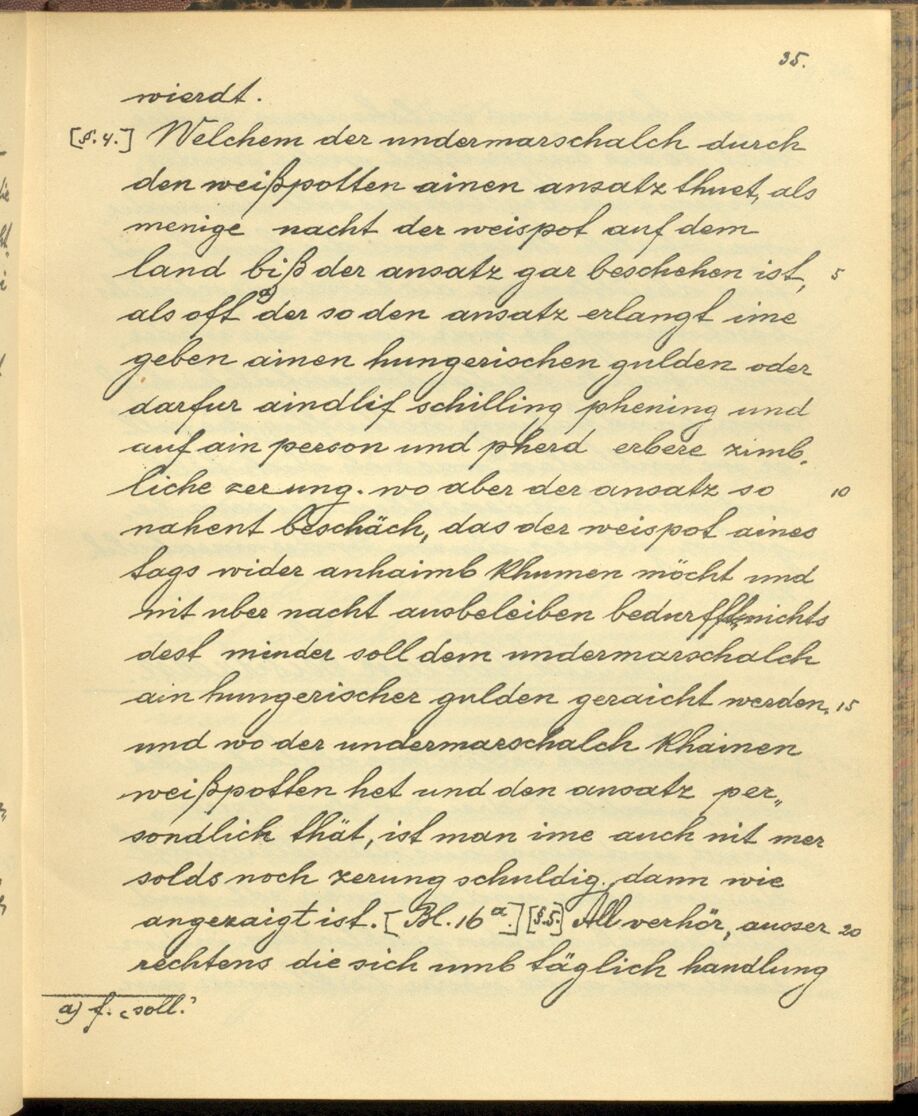 35.
wierdt.
[§.4.] Welchem der undermarschalch durch
den weißpotten ainen ansatz thuet, als
menige nacht der weispot auf dem
land biß der ansatz gar beschehen ist, 5
als oft a) der so den ansatz erlangt ime
geben ainen hungerischen gulden oder
darfur aindlif schilling phening und
auf ain person und pherd erbere zimb„
liche zerung. wo aber der ansatz so 10
nahent beschäch, das der weispot aines
tags wider anhaimb khumen möcht und
nit uber nacht ausbeleiben bedurfft, nichts
dest minder soll dem undermarschalch
ain hungerischer gulden geraicht werden, 15
und wo der undermarschalch khainen
weißpotten het und den ansatz per„
sondlich thät, ist man ime auch nit mer
solds noch zerung schuldig, dann wie
angezaigt ist. [Bl. 16 a.] [§.5.] All verhör, ausser 20
rechtens die sich umb täglich handlung
a) f. ‚soll.‘